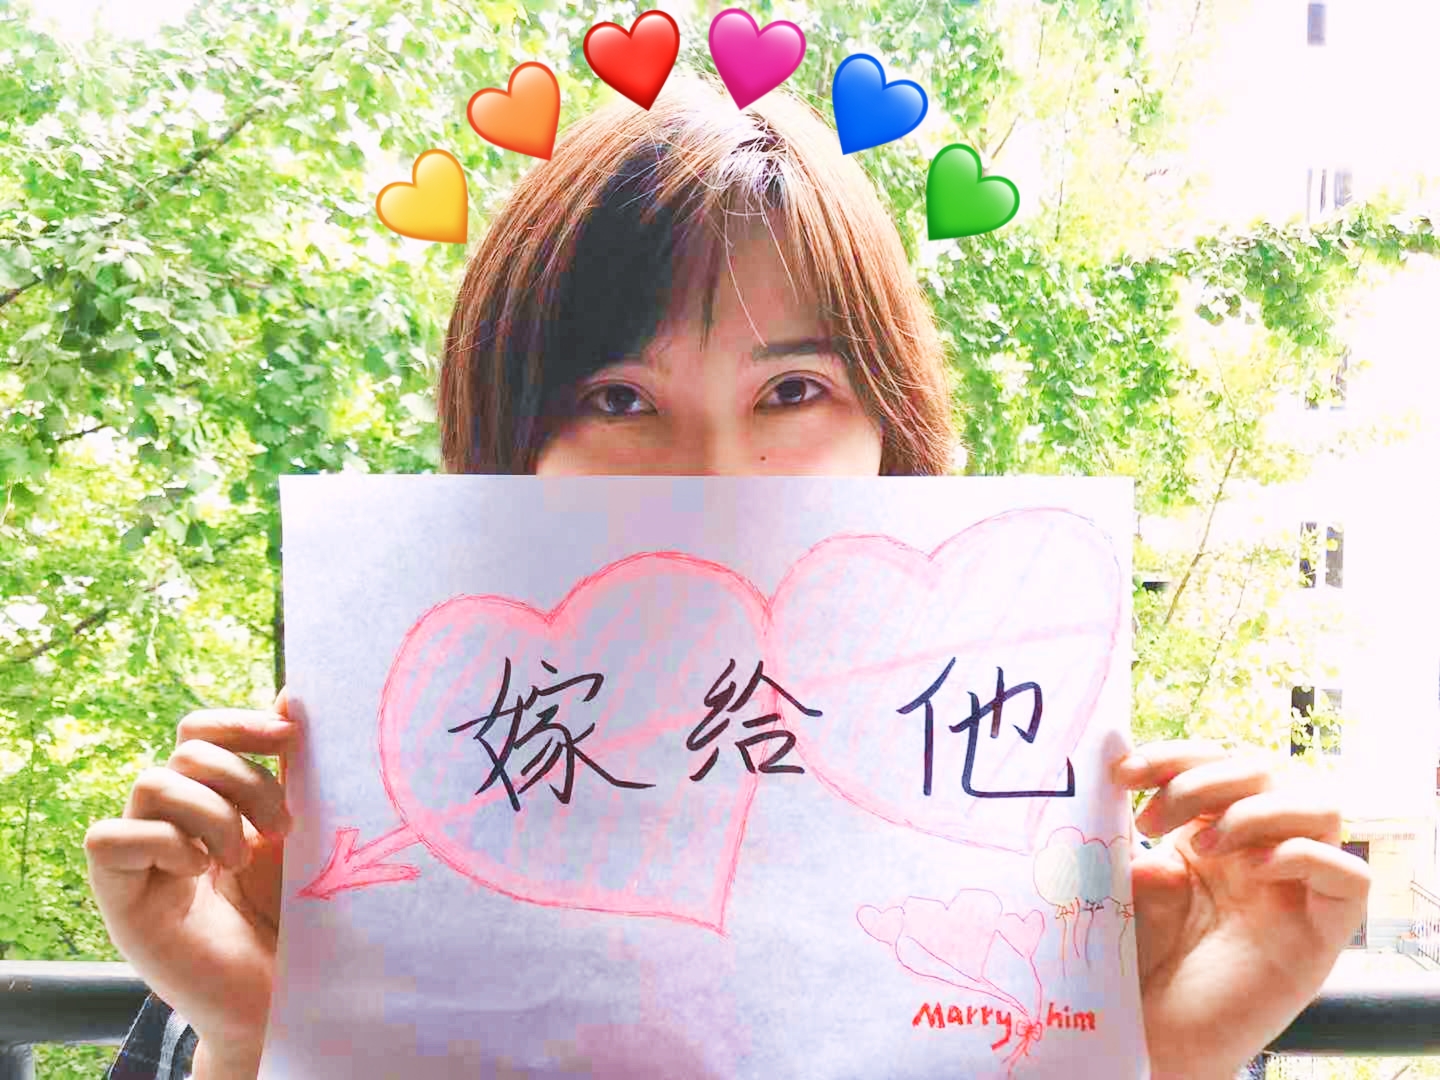 嫁给他
Marry him